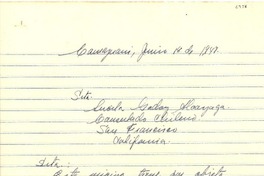 Junio 19 de 1948.
Srta.
Lucila Godoy Alcayaga.
Consulado Chileno.
San Francisco
California.
Srta.:
Esta misiva tiene por objeto